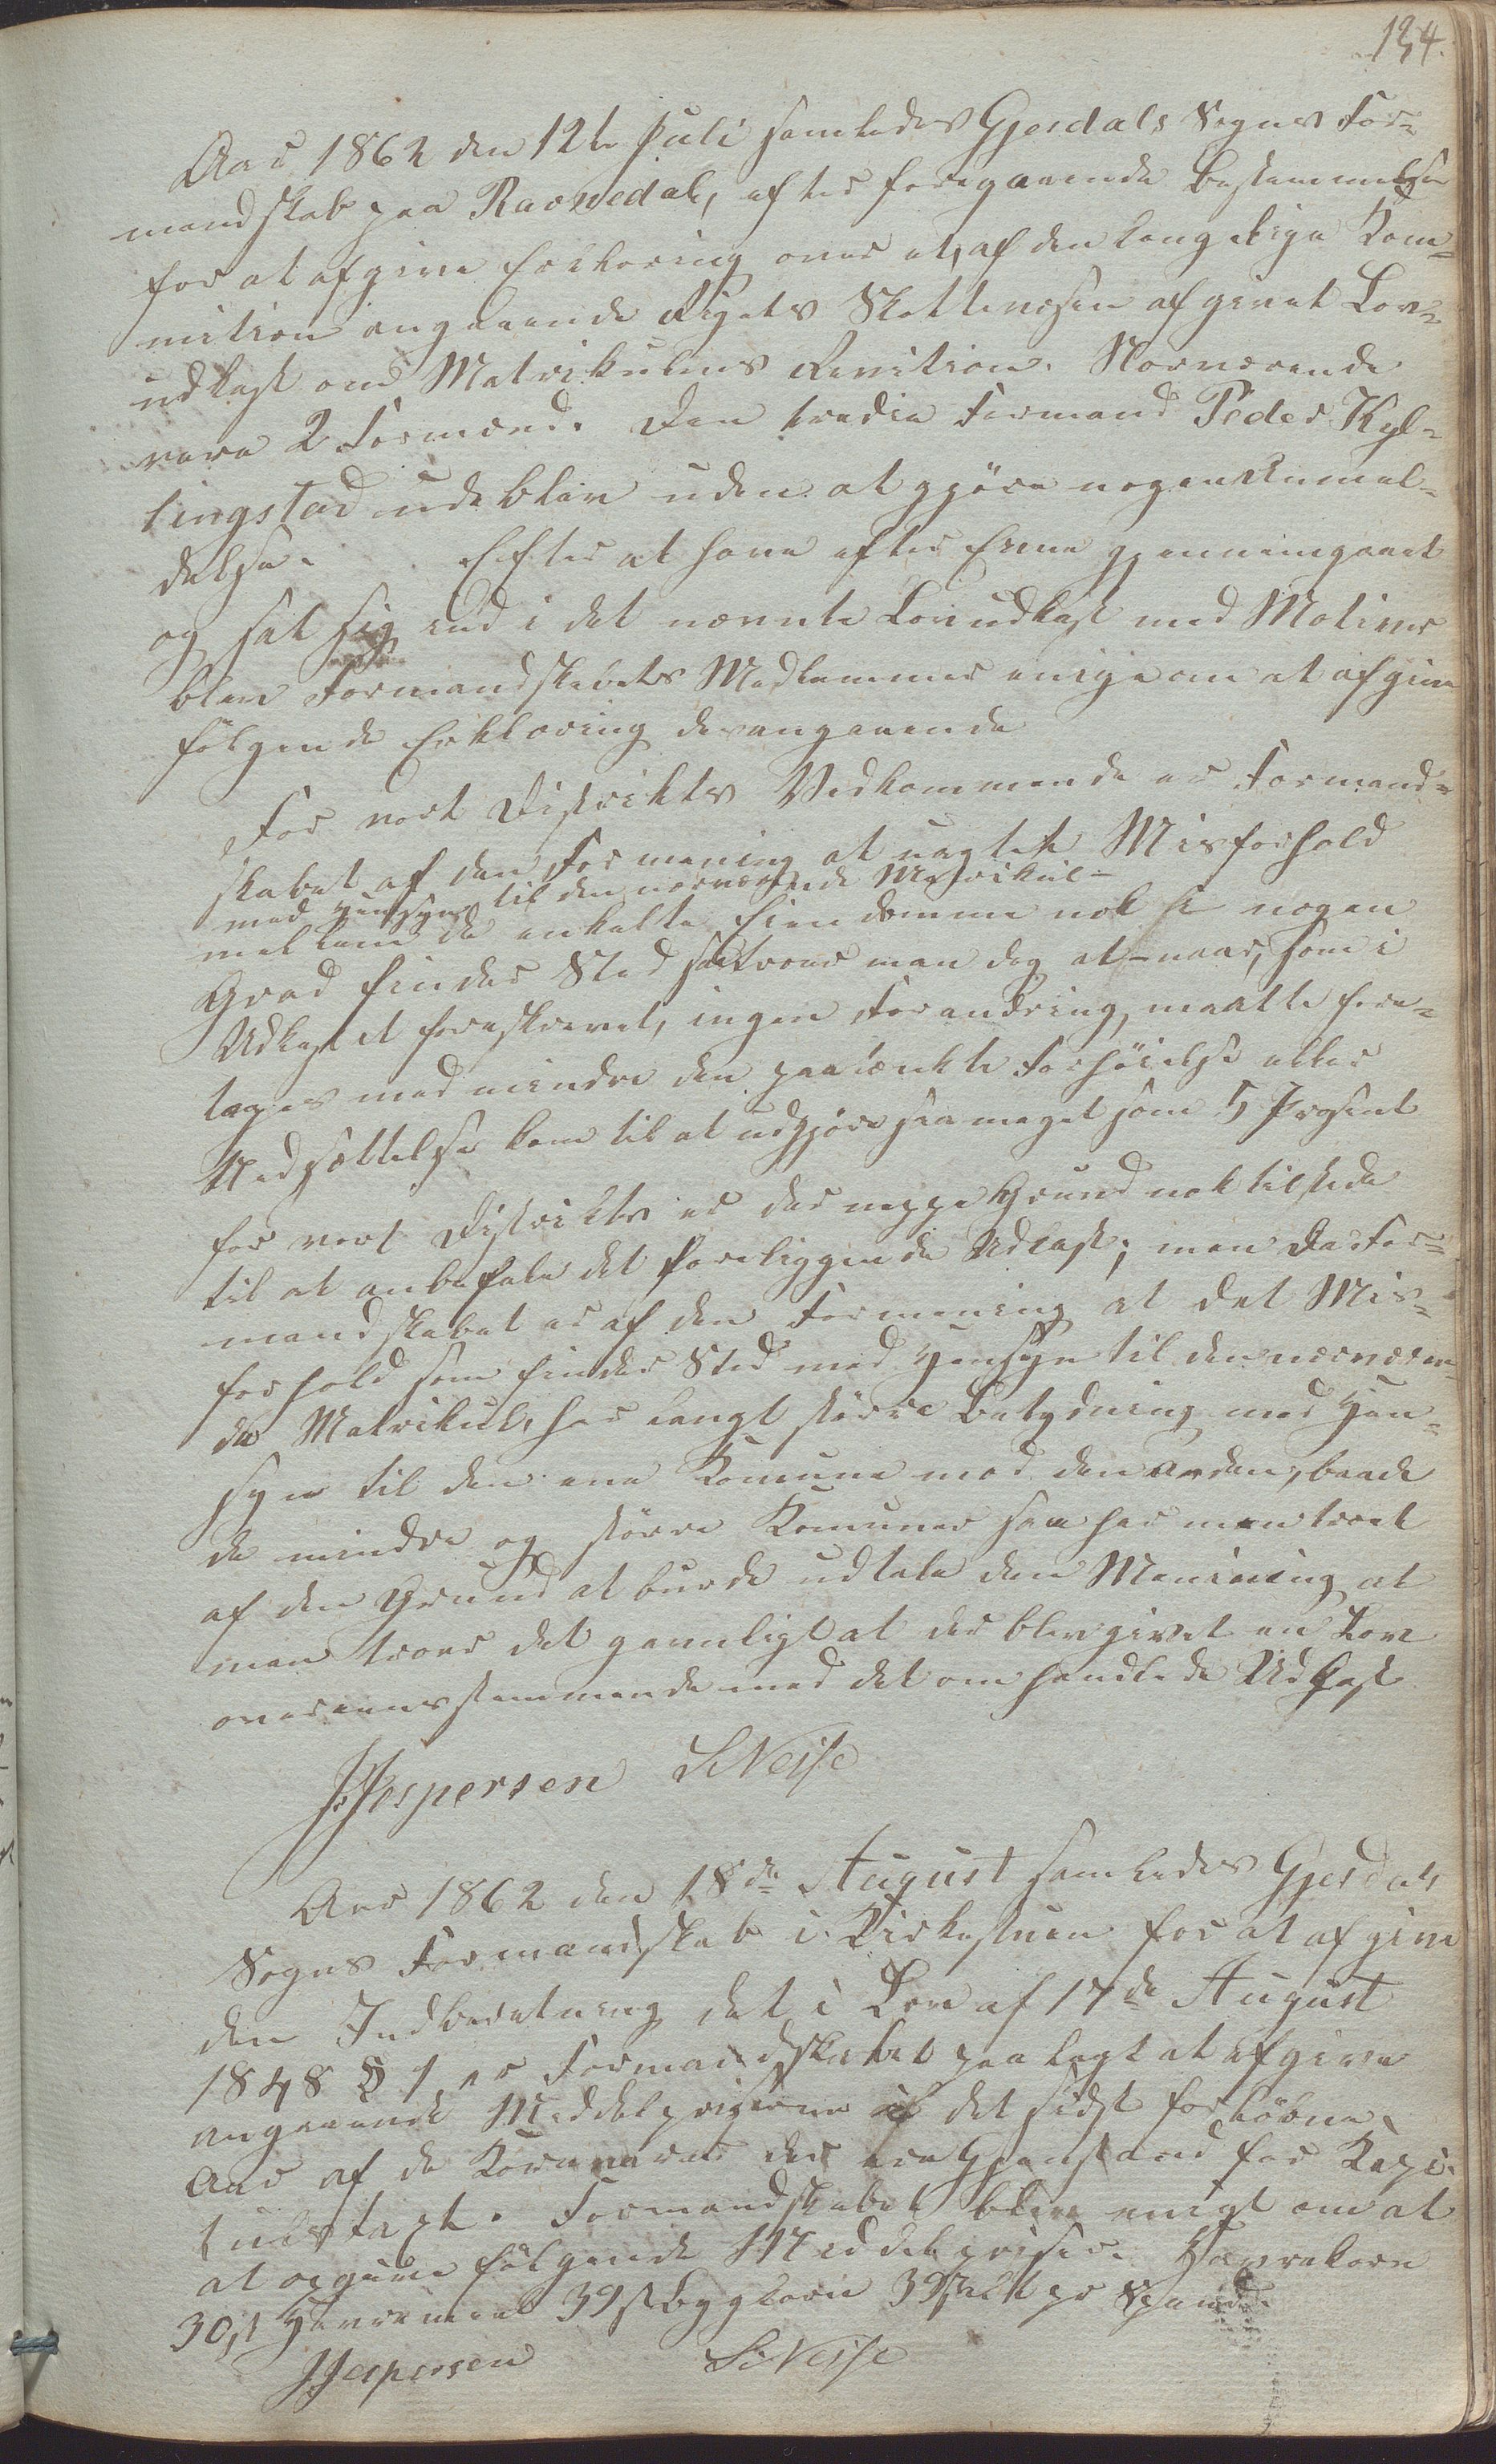 134.
Aar 1862 den 12te Juli samledes Gjesdals Sogns For-
mandskab paa Ravnedal, efter foregaaende Bestemmelse
for at afgive Erklæring over et, af den kongelige Kom-
mition angaaende Rigets Skattevæsen afgivet Lov-
udkast om Matrikulens Revition. Nærværende
vare 2 Formænd. Den tredie Formand Peder Kyl-
lingstad udeblev uden at gjöre nogen Anmel-
delse. Efter at have efter Evne gjennemgaaet
og sat sig ind i det nævnte Lovudkast med Motiver
blev Formandskabets Medlemmer enige om at afgive
fölgende Erklæring desangaaende
For vort Distrikts Vedkommende er Formand-
skabet af den Formening at uagtet Misforhold
med Hensyn til den nærværende Matrikul
mellem de enkelte Eiendomme nok i nogen
Grad finder Sted saa troer man dog at naar, som i
Udkastet foreskrevet, ingen Forandring maatte fore-
tages med mindre den paatænkte Forhöielse eller
Nedsættelse kom til at udgjöre saa meget som 5 Prosent
for vort Distrikts er der neppe Grund nok tilstede
til at anbefale det foreliggende Udkast; men da For-
mandskabet er af den Formening at det Mis-
forhold som finder Sted med Hensyn til den nærværen-
de Matrikul, har langt större Betydning med Hen-
syn til den ene Komune mod den anden, baade
de mindre og större Komuner saa har man troet
af den Grund at burde udtale den Menining at
man troer det gavnligt at der blev givet en Lov
overeensstemmende med det omhandlede Udkast
J. Jespersen S. Nesse
Aar 1862 den 18de August samledes Gjesdals
Sogns Formandskab i Kirkestuen for at afgive
den Indberetning det i Lov af 17de August
1848 § 1 er Formandskabet paalagt at afgive
angaaende Middelpriserne af det sidst forlöbne
Aar af de Kornvarer der ere Gjenstand for Kapi-
tulstaxt. Formandskabet blev enigt om at
at opgive fölgende Middelpriser. Havrekorn
30 ß Havremeel 39 ß Bygkorn 39 ß Alt pr Spand.
J. Jespersen S. Nesse